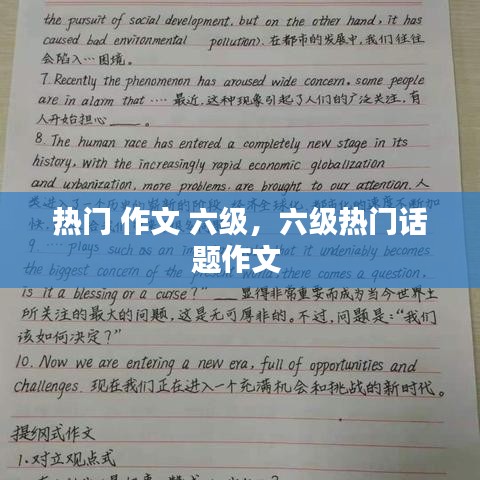 the pursuit of social development, but on the other hand, it has
caused bad environmental pollution). 在都市的发展中,我们往往
会陷入…困境。
7. Recently the phenomenon has aroused wide concern. some people
are in alarm that .... 最近,这种现象引起了人们的广泛关注,有
人开始担心____。
8. The human race has entered a completely new stage in its
history, with the increasingly rapid economic globalization
and urbanization, more problems are brought to our attention. 人
热门 作文 六级,六级热门话
题作文
9. .... plays such as an it undeniably becomes
the biggest concern of the present world, there comes a question,
is it a blessing or a curse?" ___ 显得非常重要而成为当今世界上
所关注的最大的问题,这是无可厚非的。不过,问题是:“我们
该如何决定?”
10. Now we are entering a new era, full of opportunities and
challenges. 现在我们正在进入一个充满机会和挑战的新时代。
提纲式作文
1.对立观点式